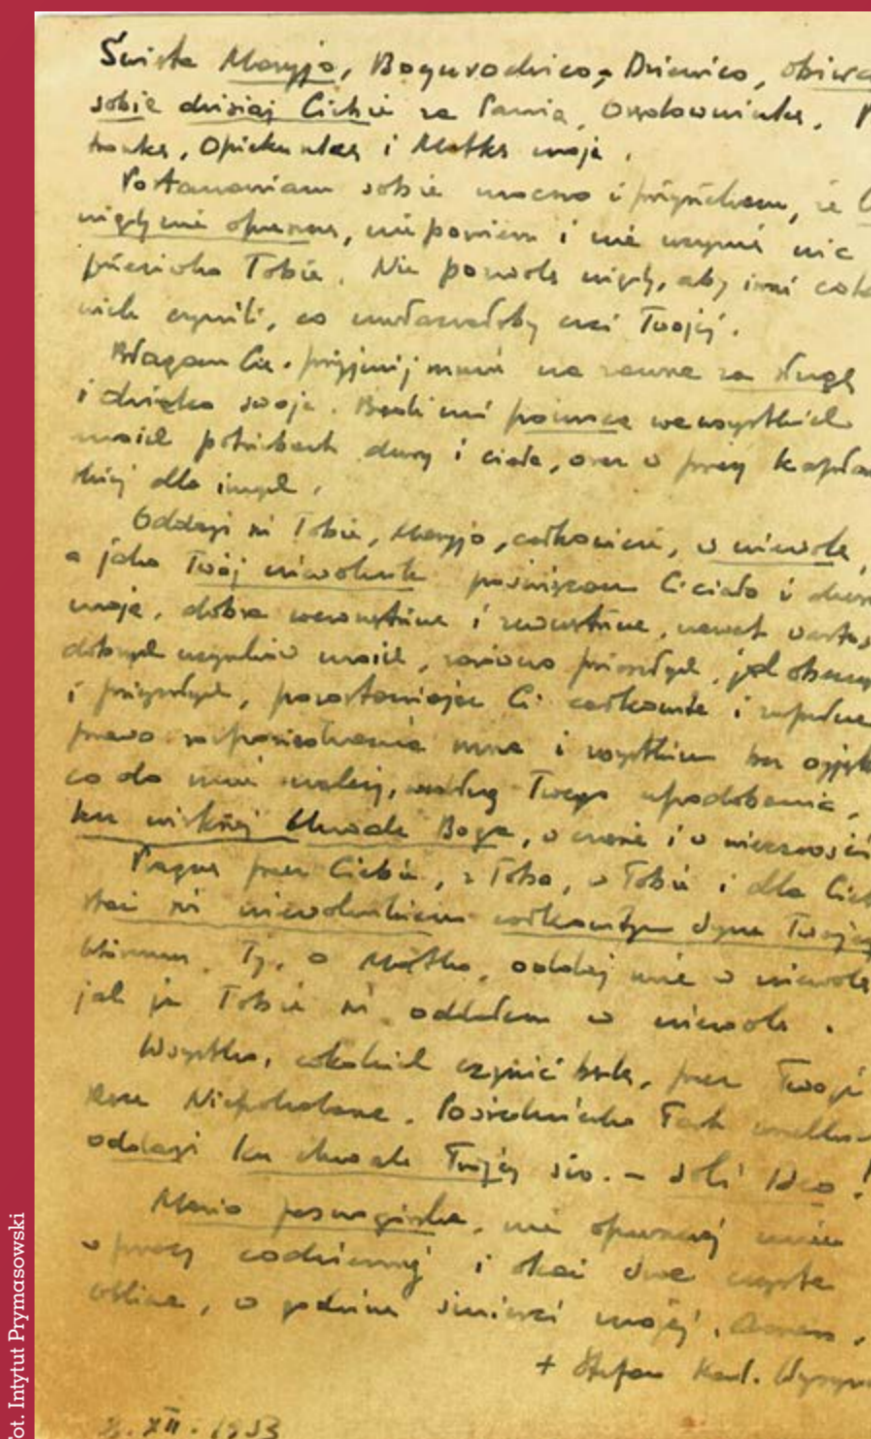 Święta Maryjo, Bogurodzico, Dziewico, obier
sobie dzisiaj Ciebie za Panią, Orędowniczkę, P
tronkę, Opiekunkę i Matkę moją.
Postanawiam sobie mocno i przyrzekam, że C
nigdy nie opuszczę, nie powiem i nie uczynię nic
przeciwko Tobie. Nie pozwolę nigdy, aby inni cok
wiek czynili, co uwłaczałoby czci Twojej.
Błagam Cię, przyjmij mnie na zawsze za sługę
i dziecko swoje. Bądź mi pomocą we wszystkich
moich potrzebach duszy i ciała, oraz w pracy kapłań
skiej dla innych.
Oddaję się Tobie, Maryjo, całkowicie, w niewolę,
a jako Twój niewolnik poświęcam Ci ciało i dusz
moją, dobra wewnętrzne i zewnętrzne, nawet wartoś
dobrych uczynków moich, zarówno przeszłych, jak obecny
i przyszłych, pozostawiając Ci całkowite i zupełne
prawo rozporządzania mną i wszystkim bez wyją
co do mnie należy, według Twego upodobania,
ku większej Chwale Boga, w czasie i w wieczności
Pragnę przez Ciebie, z Tobą, w Tobie i dla Cieb
stać się niewolnikiem całkowitym Syna Twojego
któremu Ty, o Matko, oddaj mnie w niewolę
jak ja Tobie się oddałem w niewolę.
Wszystko, cokolwiek czynić będę, przez Twoje
Ręce Niepokalane, Pośredniczko Łask wszelkich
oddaję ku chwale Trójcy św. – Soli Deo!
Mario Jasnogórska, nie opuszczaj mnie
w pracy codziennej i okaż swe czyste
oblicze, w godzinę śmierci mojej. Amen.
+ Stefan Kard. Wyszyń
XII. 1953
ot. Intytut Prymasowski